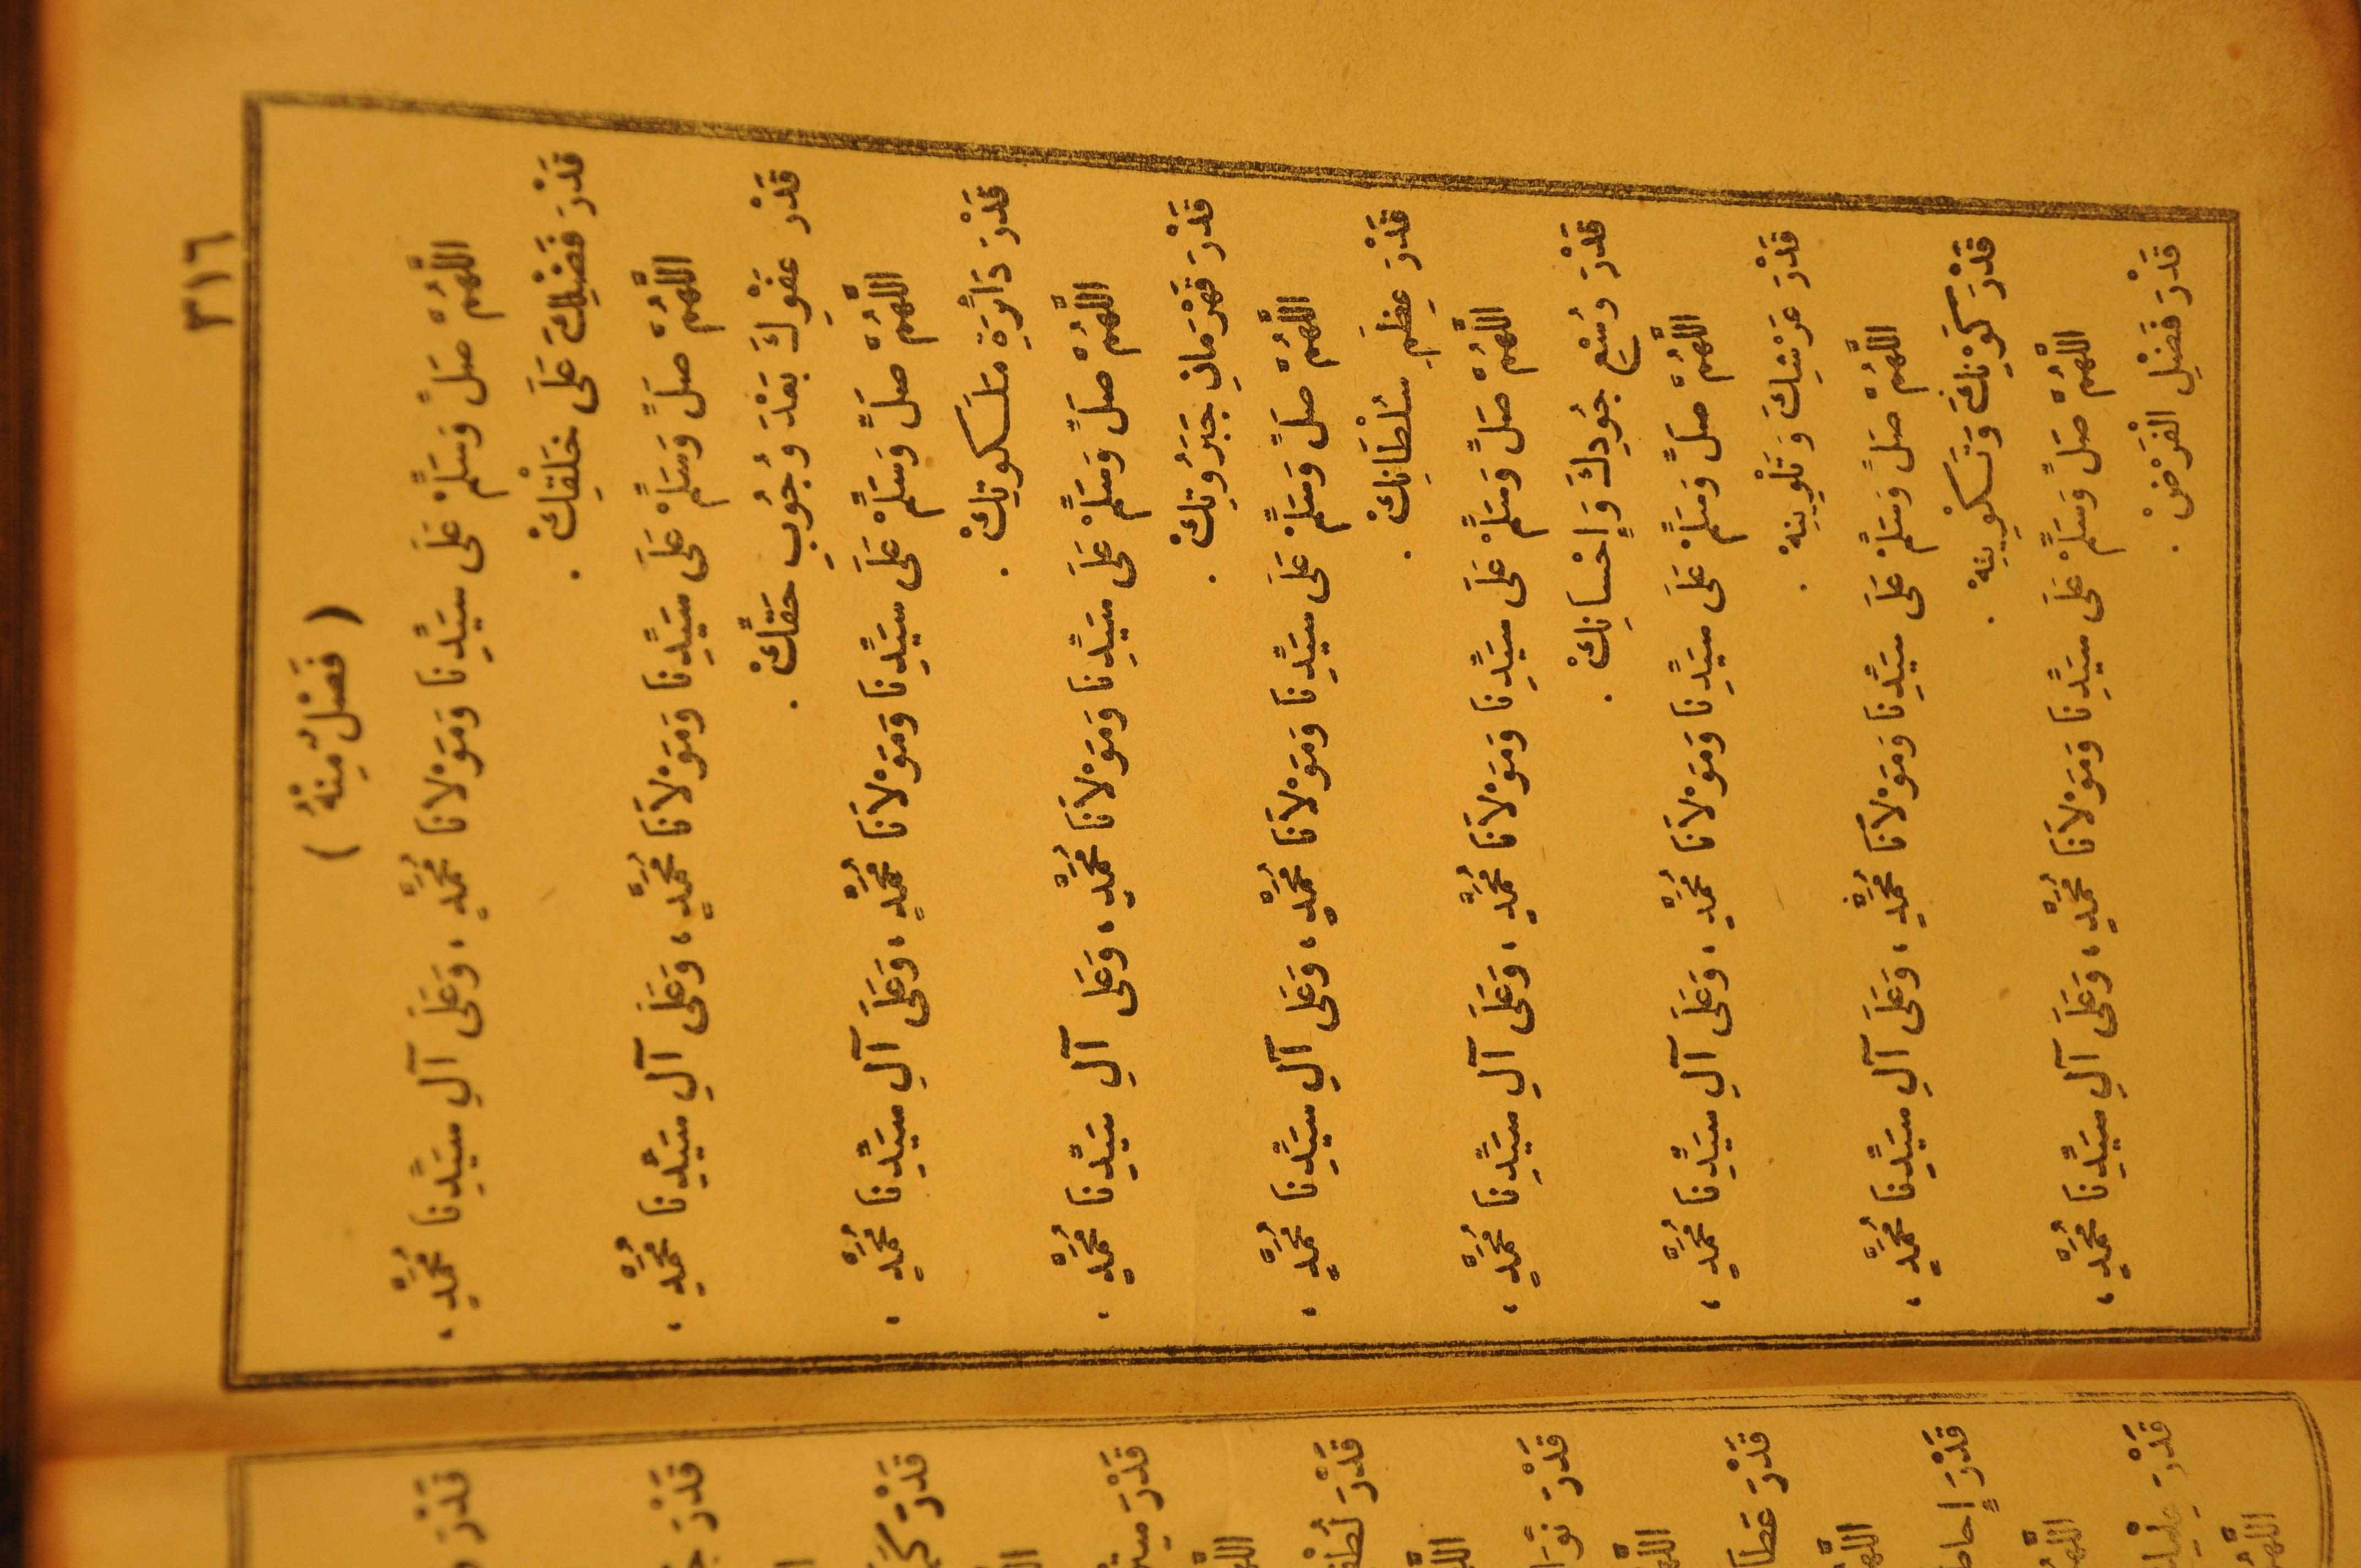 ٣١٦
( فَصْلٌ مِنْهُ )
اللَّهُمَّ صَلِّ وَسَلِّمْ عَلَى سَيِّدِنَا وَمَوْلَانَا مُحَمَّدٍ، وَعَلَى آلِ سَيِّدِنَا مُحَمَّدٍ،
قَدْرَ فَضْلِكَ عَلَى خَلْقِكْ .
اللَّهُمَّ صَلِّ وَسَلِّمْ عَلَى سَيِّدِنَا وَمَوْلَانَا مُحَمَّدٍ، وَعَلَى آلِ سَيِّدِنَا مُحَمَّدٍ،
قَدْرَ عَفْوِكَ بَعْدَ وُجُوبِ حَقِّكْ .
اللَّهُمَّ صَلِّ وَسَلِّمْ عَلَى سَيِّدِنَا وَمَوْلَانَا مُحَمَّدٍ، وَعَلَى آلِ سَيِّدِنَا مُحَمَّدٍ،
قَدْرَ دَائِرَةِ مَلَكُوتِكْ .
اللَّهُمَّ صَلِّ وَسَلِّمْ عَلَى سَيِّدِنَا وَمَوْلَانَا مُحَمَّدٍ، وَعَلَى آلِ سَيِّدِنَا مُحَمَّدٍ،
قَدْرَ قَهْرَمَانِ جَبَرُوتِكْ .
اللَّهُمَّ صَلِّ وَسَلِّمْ عَلَى سَيِّدِنَا وَمَوْلَانَا مُحَمَّدٍ، وَعَلَى آلِ سَيِّدِنَا مُحَمَّدٍ،
قَدْرَ عِظَمِ سُلْطَانِكْ .
اللَّهُمَّ صَلِّ وَسَلِّمْ عَلَى سَيِّدِنَا وَمَوْلَانَا مُحَمَّدٍ، وَعَلَى آلِ سَيِّدِنَا مُحَمَّدٍ،
قَدْرَ وُسْعِ جُودِكَ وَإِحْسَانِكْ .
اللَّهُمَّ صَلِّ وَسَلِّمْ عَلَى سَيِّدِنَا وَمَوْلَانَا مُحَمَّدٍ، وَعَلَى آلِ سَيِّدِنَا مُحَمَّدٍ،
قَدْرَ عَرْشِكَ وَتَلْوِينِهْ .
اللَّهُمَّ صَلِّ وَسَلِّمْ عَلَى سَيِّدِنَا وَمَوْلَانَا مُحَمَّدٍ، وَعَلَى آلِ سَيِّدِنَا مُحَمَّدٍ،
قَدْرَ كَوْنِكَ وَتَكْوِينِهْ .
اللَّهُمَّ صَلِّ وَسَلِّمْ عَلَى سَيِّدِنَا وَمَوْلَانَا مُحَمَّدٍ، وَعَلَى آلِ سَيِّدِنَا مُحَمَّدٍ،
قَدْرَ فَضْلِ الْفَرْضْ .
قَدْرَ
قَدْرَ
قَدْرَ
قَدْرَ
قَدْرَ
قَدْرَ
قَدْرَ
قَدْرَ
قَدْرَ